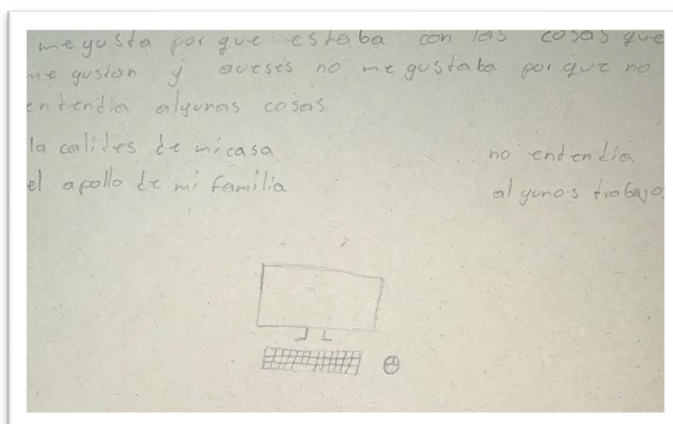 me gusta por que estaba con las cosas que
me gustan y aveses no me gustaba por que no
entendia algunas cosas
la calides de mi casa
el apollo de mi familia
no entendia
algunos trabajos